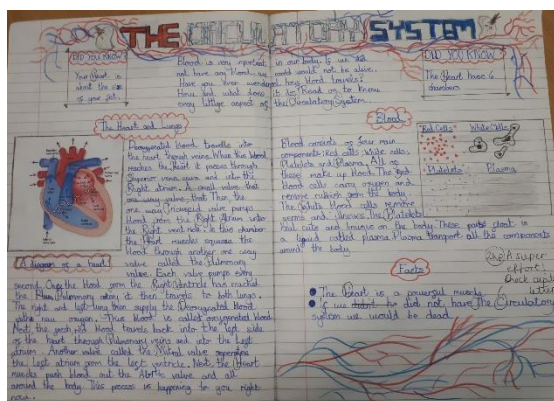 THE CIRCULATORY SYSTEM
DID YOU KNOW?
Your Heart is
about the size
of your fist.
Blood is very important in our body. If we did
not have any blood, we would not be alive.
Have you ever wondered how blood travels?
How and what does it do? Read on to know
every little aspect of the Circulatory System.
DID YOU KNOW?
The Heart have 4
chambers
The Heart and Lungs
Deoxygenated blood travels into
the heart through veins. When this blood
reaches the Heart it passes through
Superior vena cava and into the
Right atrium. A small valve that
one way valve, that
one way Tricuspid valve pumps
blood from the Right Atrium into
the Right ventricle. in this chamber
the Heart muscles squeeze the
blood through another one way
valve called the Pulmonary
valve. Each valve pumps every
A diagram of a heart
second. Once the blood from the Right Ventricle has reached
the Pulmonary artery it then travels to both lungs.
The right and left lung then supply the Deoxygenated blood
with new oxygen. This blood is called oxygenated blood.
Next the fresh blood travels back into the left side
of the heart through Pulmonary veins and into the Left
atrium. Another valve called the Mitral valve seperates
the left atrium from the left ventricle. Next the Heart
muscles push blood out the Aortic valve and all
around the body. This process is happening to you right
now.
Blood
Blood consists of four main
components: Red cells, White cells,
Platelets and Plasma. All of
these make up blood. The Red
blood cells carry oxygen and
remove rubbish from the body.
The White blood cells remove
germs and viruses. The Platelets
heal cuts and bruises on the body. These parts float in
a liquid called plasma. Plasma transport all the components
around the body.
Red Cells
White Cells
Platelets
Plasma
Facts
The Heart is a powerful muscle
If we did not have The Circulatory
system we would be dead.
A super
effort!
Check capital
letters